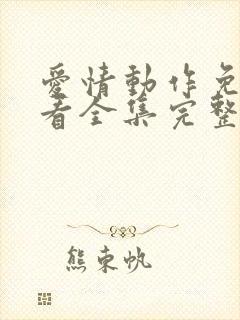 愛情動作免
看全集完整
熊束帆